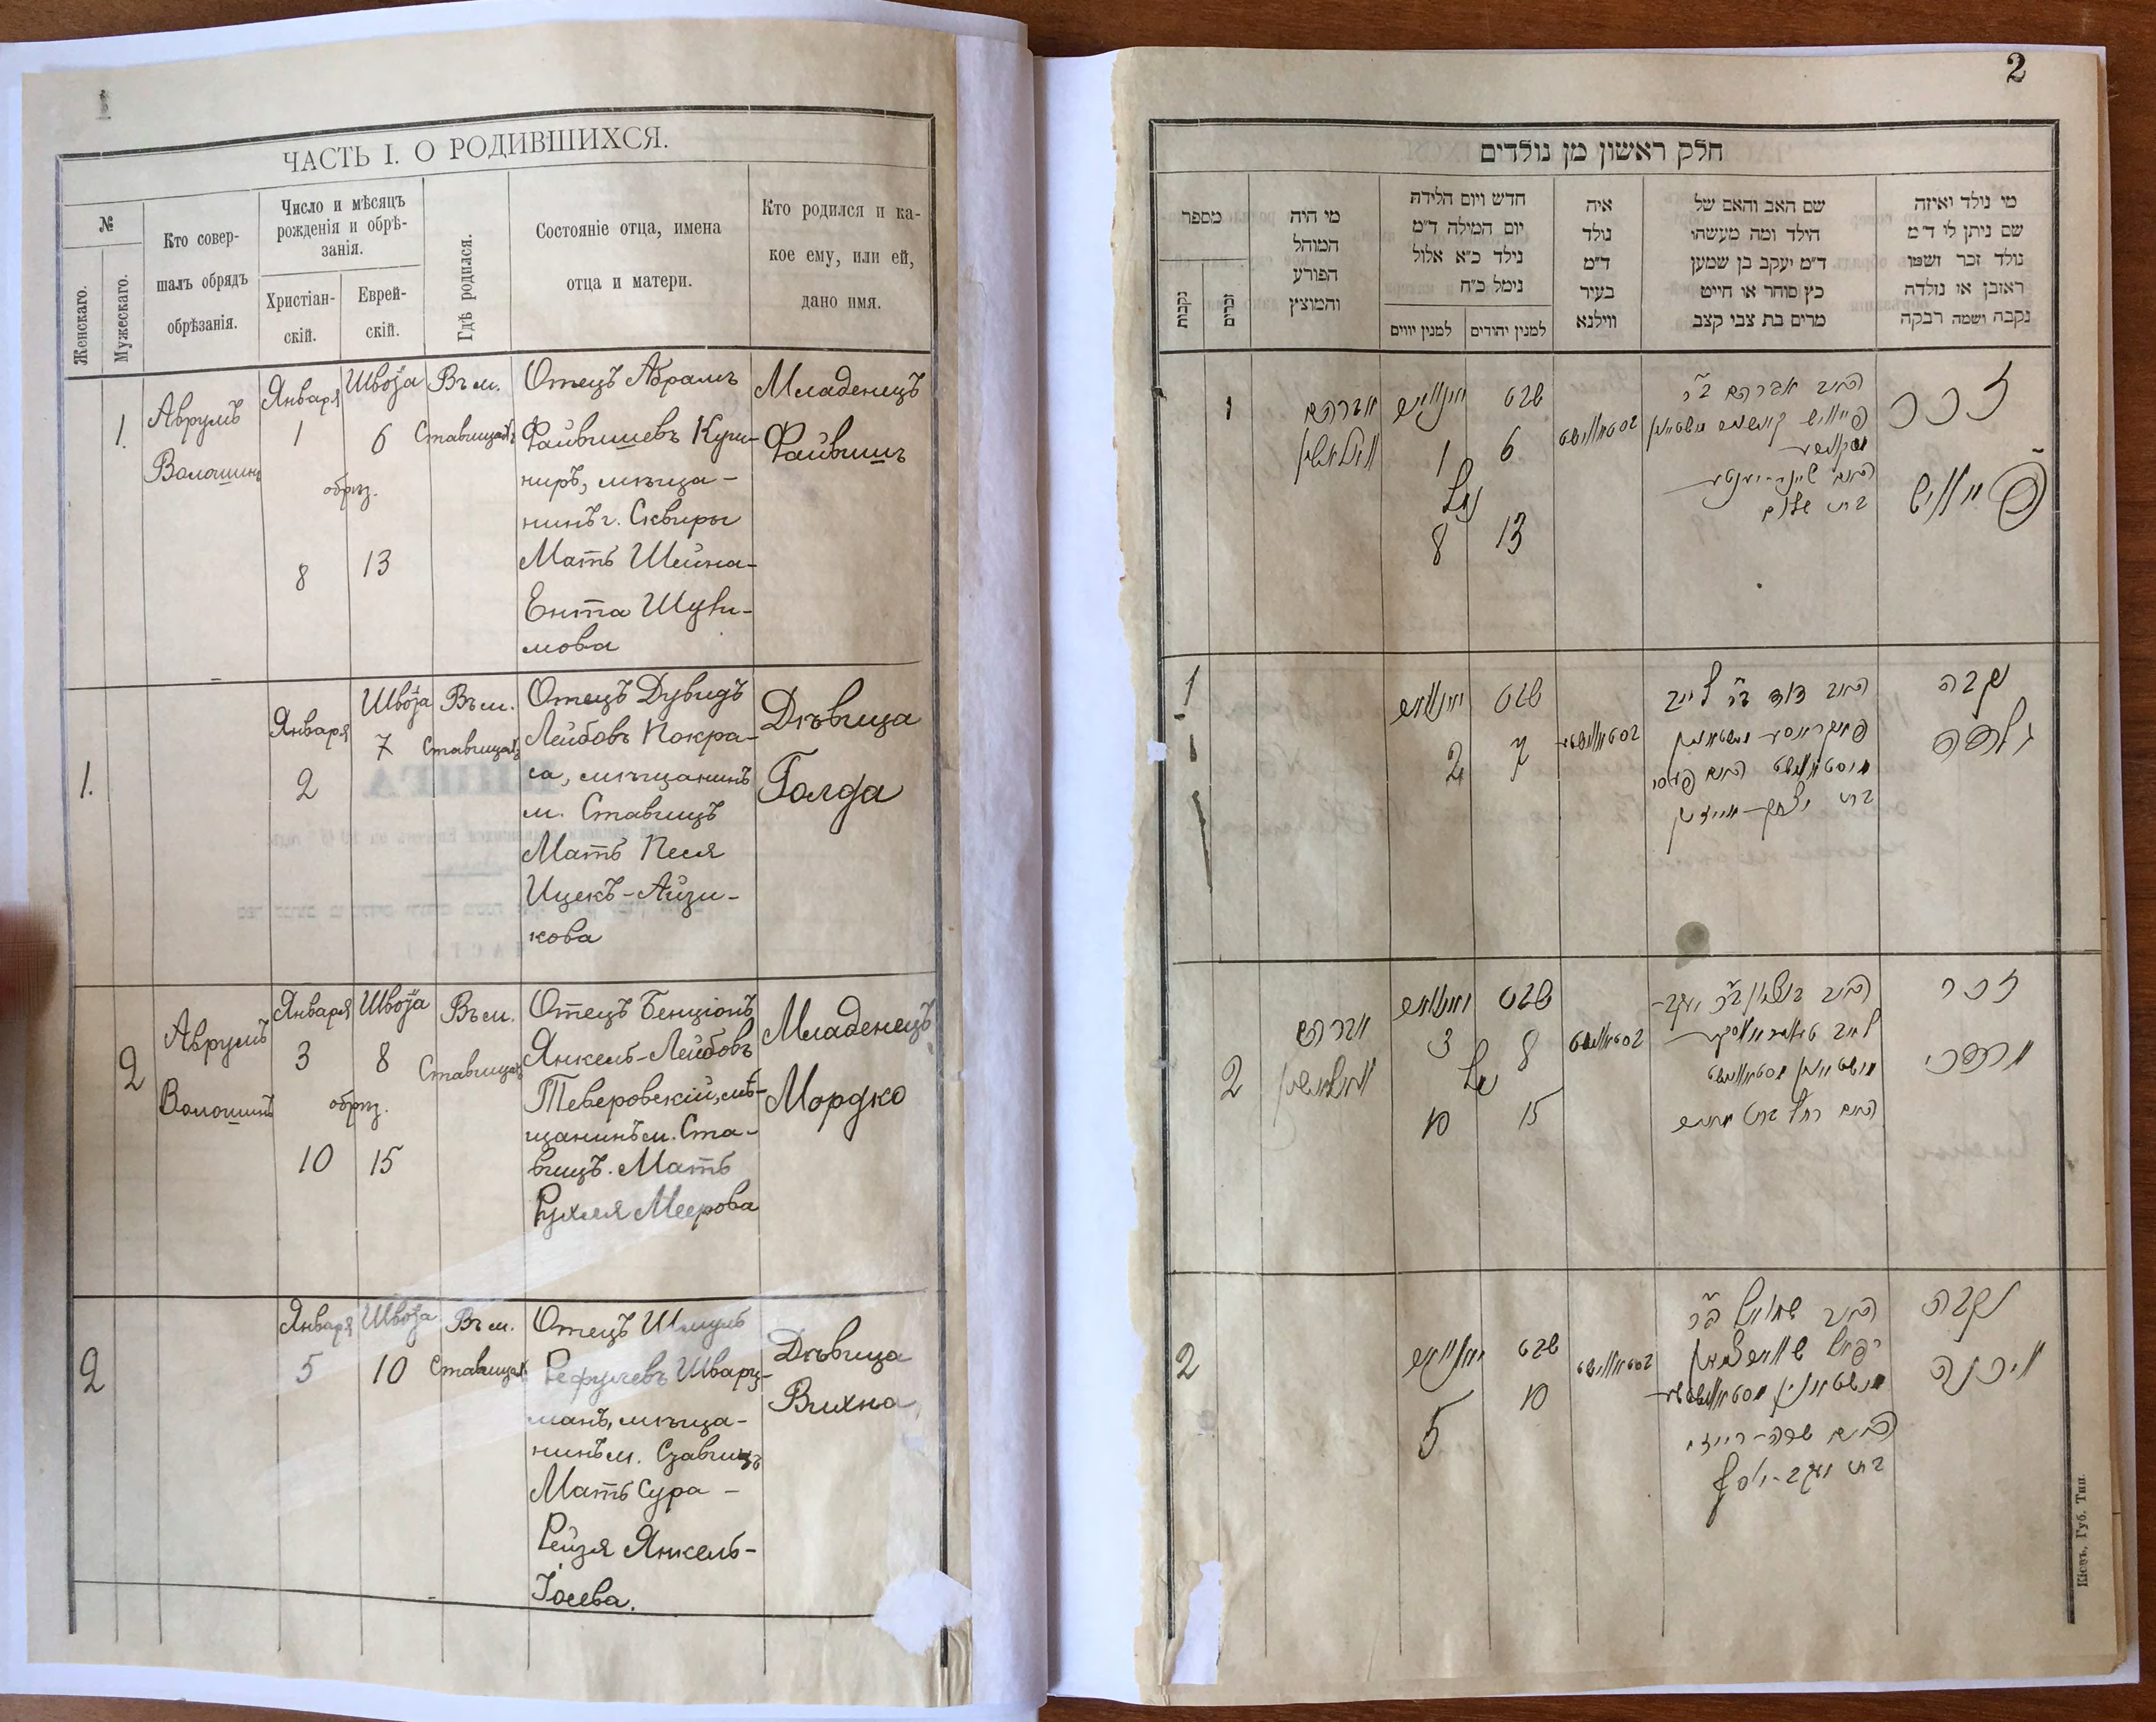 1
ЧАСТЬ I. О РОДИВШИХСЯ.
№
Женскаго.
Мужескаго.
Кто совер-
шалъ обрядъ
обрѣзанія.
Число и мѣсяцъ
рожденія и обрѣ-
занія.
Христіан-
скій.
Еврей-
скій.
Гдѣ родился.
Состояніе отца, имена
отца и матери.
Кто родился и ка-
кое ему, или ей,
дано имя.
1.
Аврумъ
Волошинъ
Января
1
обрѣз.
8
Швота
6
13
Въ м.
Ставищахъ
Отецъ Абрамъ
Файвишевъ Куш-
ниръ, мѣща-
нинъ г. Сквиры
Мать Шейна-
Ента Шули-
мова
Младенецъ
Файвишъ
1.
Января
2
Швота
7
Въ м.
Ставищахъ
Отецъ Дувидъ
Лейбовъ Покра-
са, мѣщанинъ
м. Ставищъ
Мать Песя
Ицекъ-Айзи-
кова
Дѣвица
Голда
2
Аврумъ
Волошинъ
Января
3
обрѣз.
10
Швота
8
15
Въ м.
Ставищахъ
Отецъ Бенціонъ
Янкель-Лейбовъ
Теверовскій, мѣ-
щанинъ м. Ста-
вищъ. Мать
Рухля Меерова
Младенецъ
Мордко
2
Января
5
Швота
10
Въ м.
Ставищахъ
Отецъ Шмуль
Рефулевъ Шварц-
манъ, мѣща-
нинъ м. Ставищъ
Мать Сура-
Рейзя Янкель-
Іосева.
Дѣвица
Вихна
2
חלק ראשון מן נולדים
מי נולד ואיזה
שם ניתן לו ד״מ
נולד זכר ושמו
ראובן או נולדה
נקבה ושמה רבקה
שם האב והאם של
הילד ומה מעשהו
ד״מ יעקב בן שמען
כץ סוחר או חייט
מרים בת צבי קצב
איה
נולד
ד״מ
בעיר
ווילנא
חדש ויום הלידה
יום המילה ד״מ
נילד כ״א אלול
נימל כ״ח
למנין יהודים
למנין יווים
מי היה
המוהל
הפורע
והמוצץ
מספר
זכרים
נקבות
זכר
פייוויש
האב אברהם ב״ר
האם שיינע-יענטע
בת שלום
שבט
6
13
יאנואר
1
נימול
8
אברהם
וואלאשין
1
נקבה
גאלדה
האב דוד ב״ר לייב
שבט
7
2
1
זכר
מרדכי
שבט
8
15
3
נימול
10
אברהם
וואלאשין
2
נקבה
וויכנה
האב שמואל ב״ר
האם שרה-רייזי
בת יעקב-יוסף
שבט
10
5
2
Кіевъ, Губ. Тип.